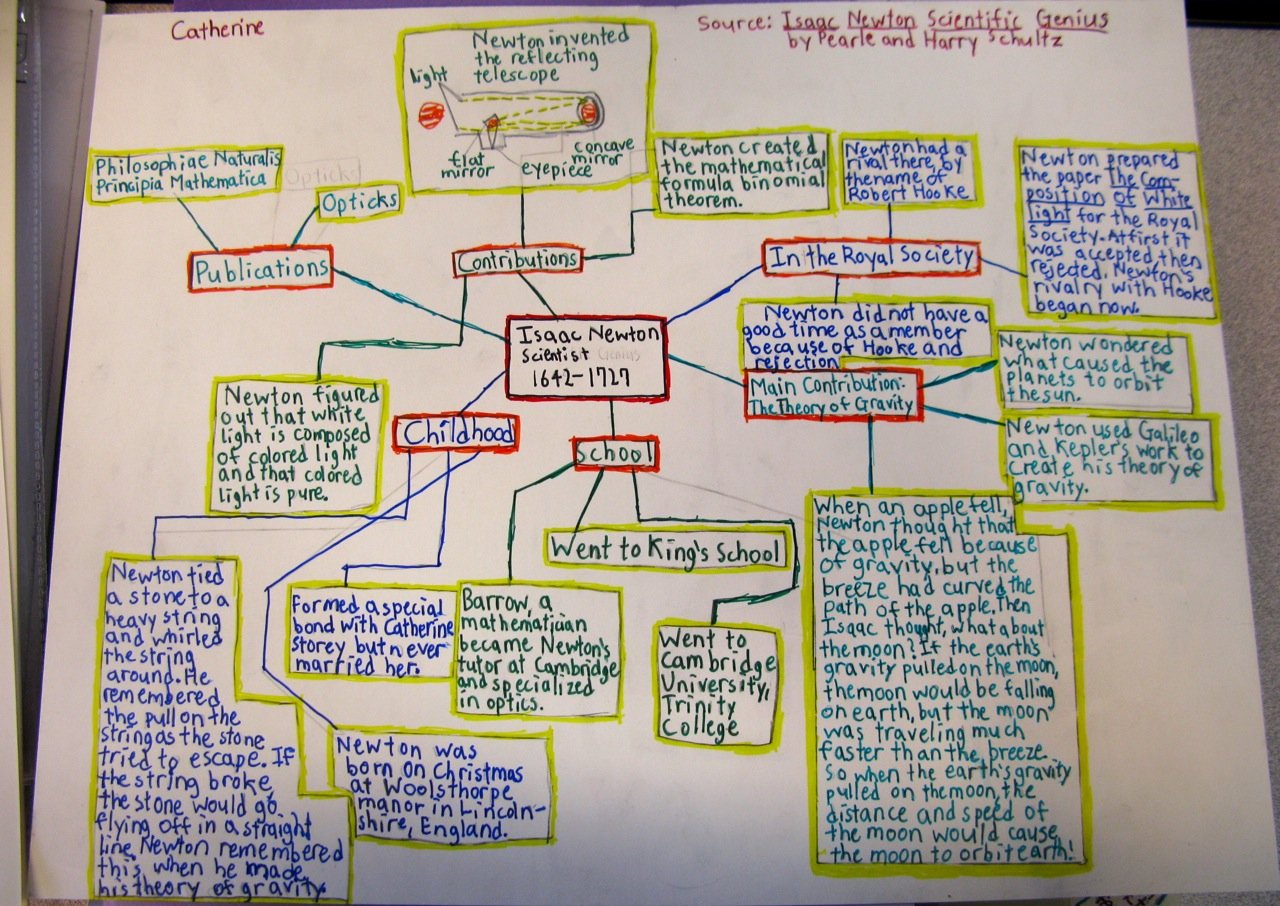 Catherine
Source: Isaac Newton Scientific Genius
by Pearle and Harry Schultz
Newton invented
the reflecting
telescope
light
flat
mirror
eyepiece
concave
mirror
Philosophiae Naturalis
Principia Mathematica
Opticks
Opticks
Publications
Contributions
Newton created
the mathematical
formula binomial
theorem.
Newton had a
rival there, by
the name of
Robert Hooke
Newton prepared
the paper The Com-
position of White
light for the Royal
Society. At first it
was accepted then
rejected. Newton's
rivalry with Hooke
began now.
In the Royal Society
Newton did not have a
good time as a member
because of Hooke and
rejection
Isaac Newton
Scientist Genius
1642-1727
Main Contribution:
The Theory of Gravity
Newton wondered
what caused the
planets to orbit
the sun.
Newton used Galileo
and Kepler's work to
create his theory of
gravity.
Newton figured
out that white
light is composed
of colored light
and that colored
light is pure.
Childhood
School
Went to King's School
When an apple fell,
Newton thought that
the apple fell because
of gravity, but the
breeze had curved the
path of the apple. Then
Isaac thought, what about
the moon? If the earth's
gravity pulled on the moon,
the moon would be falling
on earth, but the moon
was traveling much
faster than the breeze.
So when the earth's gravity
pulled on the moon, the
distance and speed of
the moon would cause
the moon to orbit earth!
Newton tied
a stone to a
heavy string
and whirled
the string
around. He
remembered
the pull on the
string as the stone
tried to escape. If
the string broke,
the stone would go
flying off in a straight
line. Newton remembered
this, when he made
his theory of gravity.
Formed a special
bond with Catherine
Storey but never
married her.
Barrow, a
mathematician
became Newton's
tutor at Cambridge
and specialized
in optics.
Went to
Cambridge
University,
Trinity
College
Newton was
born on Christmas
at Woolsthorpe
manor in Lincoln-
shire, England.